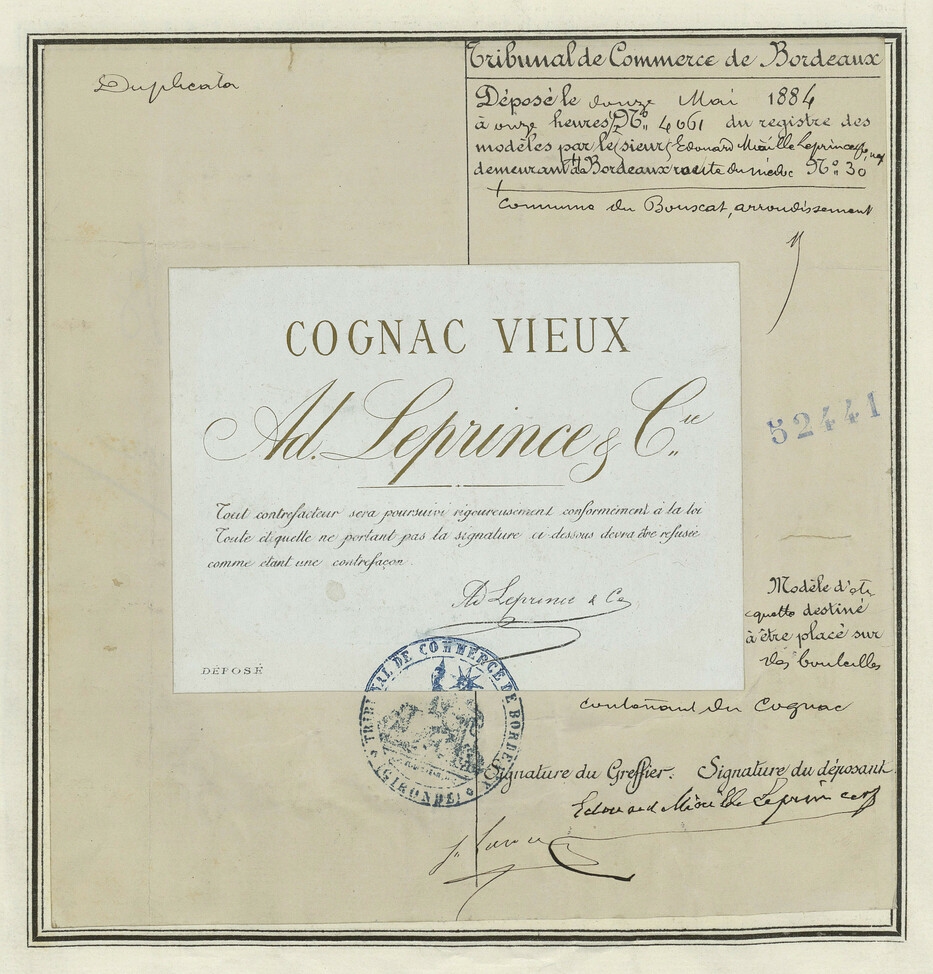 Duplicata
Tribunal de Commerce de Bordeaux
Déposé le douze Mai 1884
à onze heures No 4061 du registre des
modèles par le sieur Edouard Miaille Leprince
demeurant à Bordeaux route du médoc No 30
Commune du Bouscat, arrondissement
COGNAC VIEUX
Ad. Leprince & Cie
52441
Tout contrefacteur sera poursuivi rigoureusement conformément à la loi
Toute etiquette ne portant pas la signature ci dessous devra être refusée
comme etant une contrefaçon
Ad Leprince & Ce
DÉPOSÉ
Modèle d'éti
quette destiné
à être placé sur
des bouteilles
contenant du Cognac
TRIBUNAL DE COMMERCE DE BORDEAUX
(GIRONDE)
Signature du Greffier. Signature du déposant.
Edouard Miaille Leprince